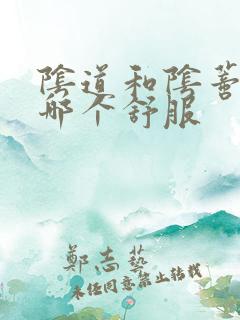 陰道和陰蒂
哪个舒服
鄭志藝
未经同意禁止转载